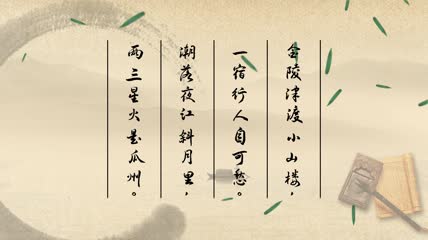 金陵津渡小山楼，
一宿行人自可愁。
潮落夜江斜月里，
两三星火是瓜州。